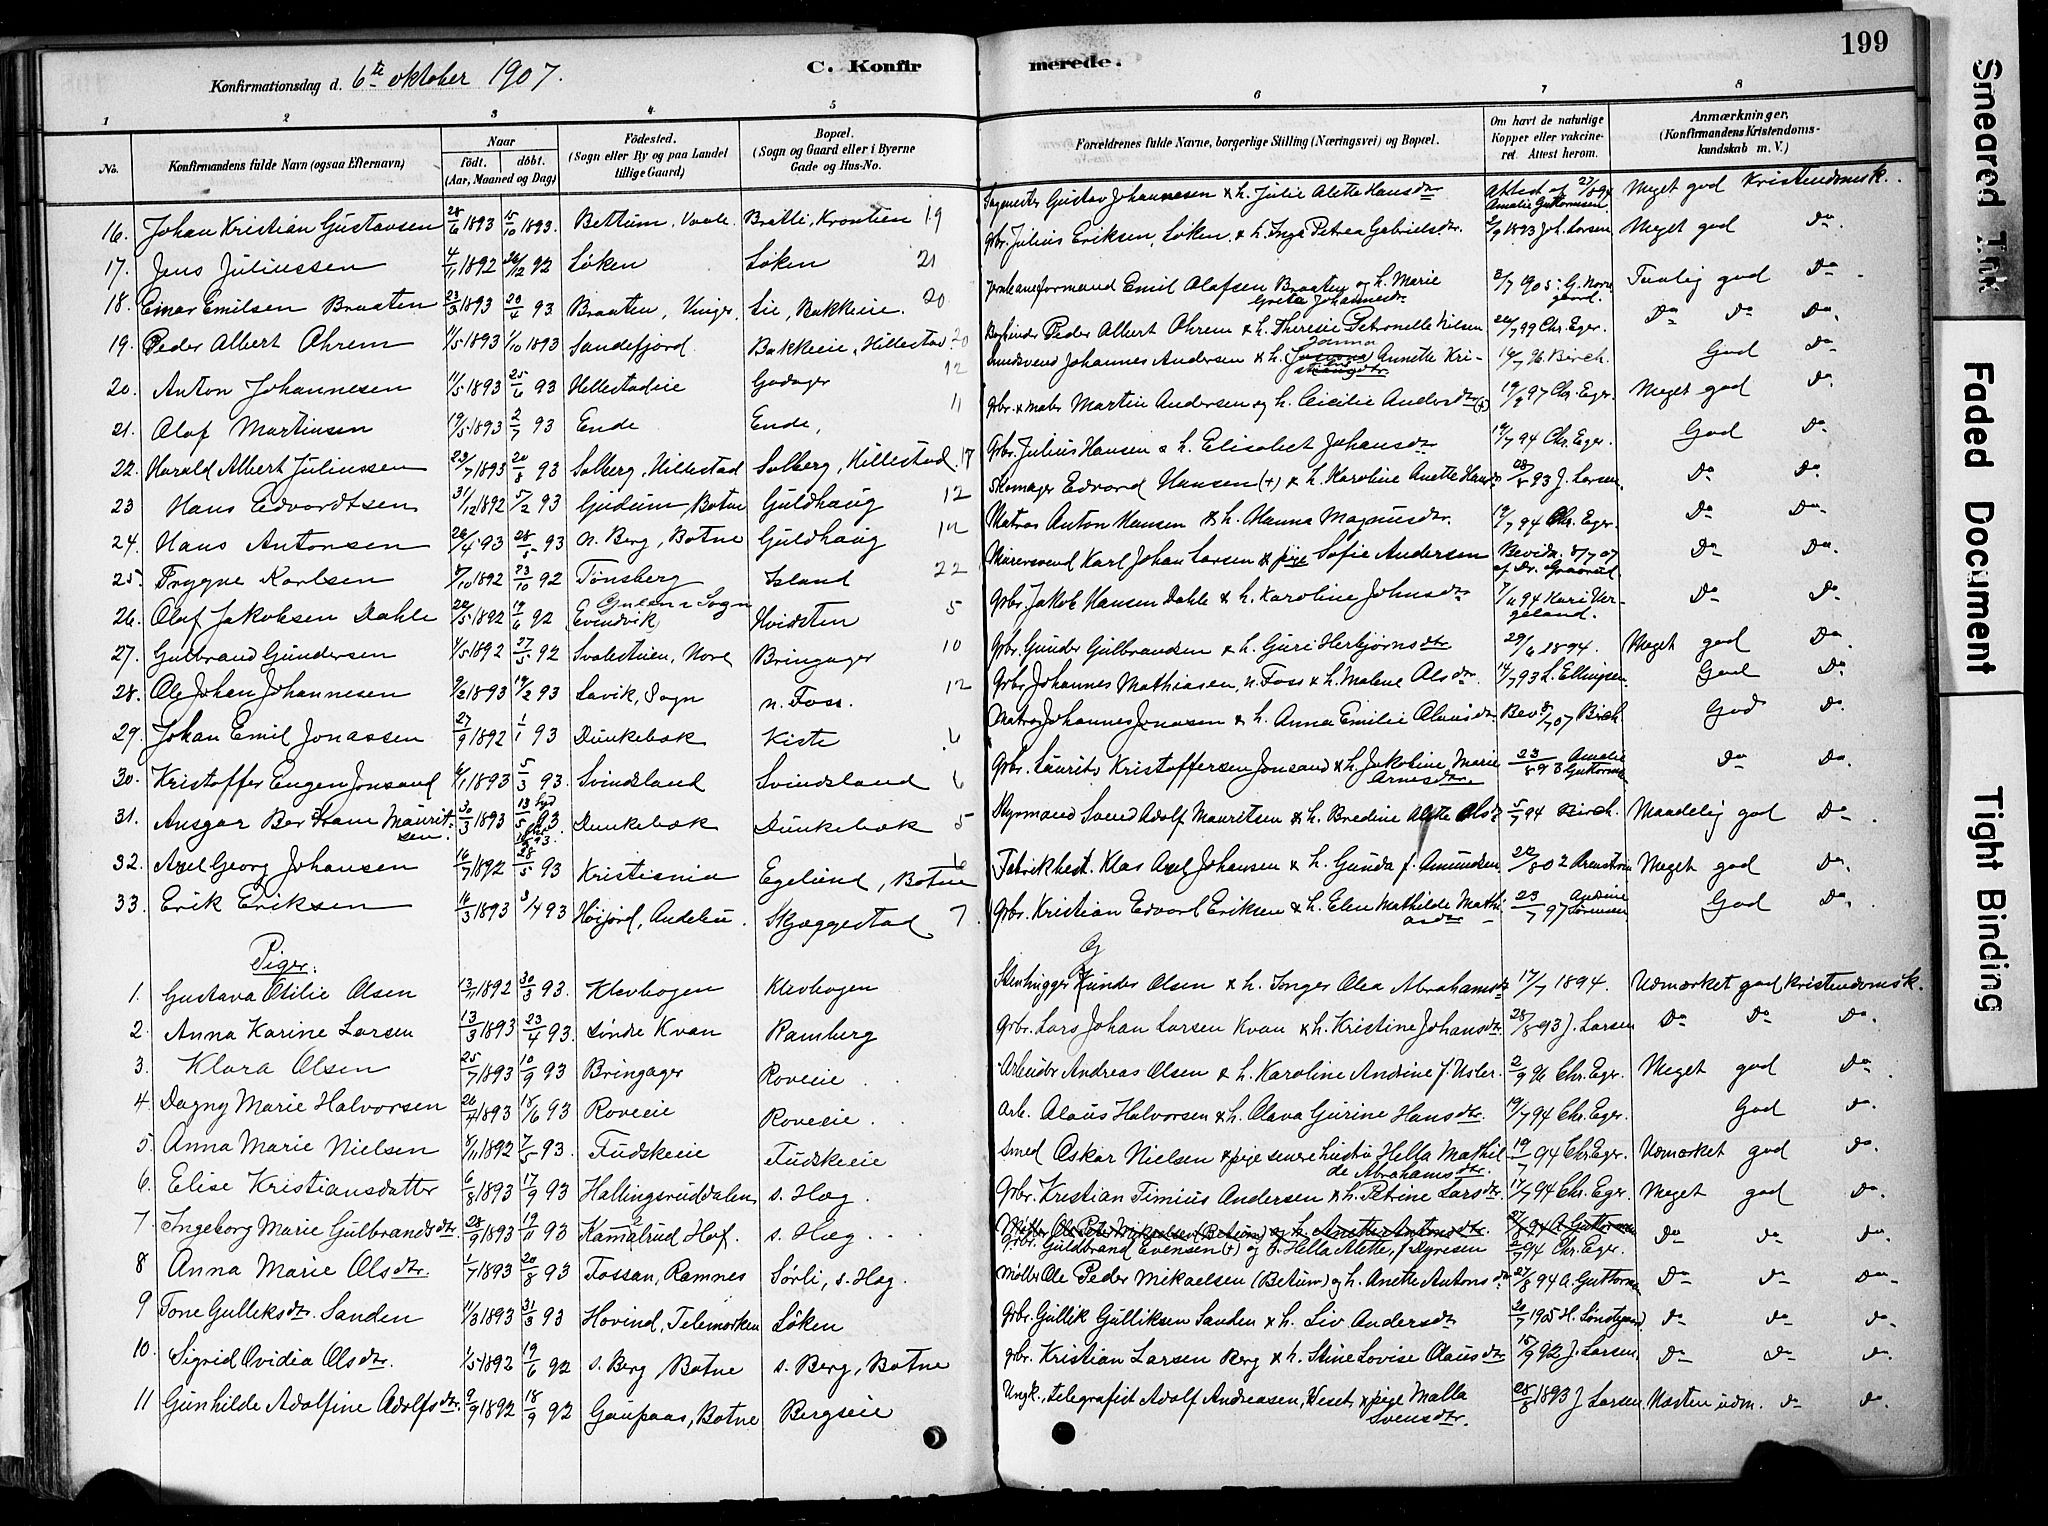 199
Konfirmationsdag d. 6te oktober 1907.
C. Konfirmerede.
1 2 3 4 5 6 7 8
No.
Konfirmandens fulde Navn (ogsaa Efternavn)
Naar
født. døbt.
(Aar, Maaned og Dag)
Fødested.
(Sogn eller By og paa Landet
tillige Gaard)
Bopæl.
(Sogn og Gaard eller i Byerne
Gade og Hus-No.
Forældrenes fulde Navne, borgerlige Stilling (Næringsvei) og Bopæl.
Om havt de naturlige
Kopper eller vakcine-
ret. Attest herom.
Anmærkninger,
(Konfirmandens Kristendoms-
kundskab m. V.)
16. Johan Kristian Gustavsen 28/6 1893 15/10 1893. Bettum, Vaale Bratli, Krontien 19 Gustav Johannesen & h. Julie Alette Hansdtr Attest af 27/8 94 Amalie Guttormsen. Meget god Kristendomsk.
17. Jens Juliussen 4/11 1892 26/12 92 Løken Løken 21 Gbr. Julius Eriksen, Løken, & h. Inga Petrea Gabrielsdtr. 2/9 1893 Joh. Larsen Meget god Do
18. Einar Emilsen Braaten 23/3 1893 20/4 93 Braaten, Vinger. Lie, Bakkeie. 20 Emil Olafsen Braaten og h. Marie Grete Johannesdr 3/7 1905 G. Nor gaard. Tarvelig god Do
19. Peder Albert Ohrem 11/5 1893 1/10 1893 Sandefjord Bakkeie, Hillestad 20 Peder Albert Ohrem & h. Theresie Petronelle Nilsen 26/7 99 Chr. Eger. Do Do Do
20. Anton Johannesen 11/5 1893 25/6 93 Hillestadeie Godager 12 Johannes Andersen & h. Janna Annette Kristensdtr 19/7 96 Birch. God Do
21. Olaf Martinsen 19/5 1893 2/7 93 Ende Ende, 11 Gbr. & møbs Martin Andersen og h. Cicilie Andersdtr (+) 19/9 97 Chr. Eger. Meget god Do
22. Harald Albert Juliussen 23/7 1893 20/8 93 Solberg, Hillestad Solberg, Hillestad. 17 Gbr. Julius Hansen & h. Elisabet Johansdtr 19/7 94 Chr. Eger. God Do
23 Hans Edvardtsen 31/12 1892 5/2 93 Gudum, Botne Guldhaug 12 Skomager Edvard Hansen (+) & h. Karoline Anette Hansdr 28/8 93 J. Larsen. Do Do
24. Hans Antonsen 26/4 93 28/5 93 n. Berg, Botne Guldhaug 12 Matros Anton Hansen & h. Hanna Magnusdtr. 19/7 94 Chr. Eger. Do Do
25. Trygve Karlsen 8/10 1892 23/10 92 Tønsberg Island 22 Murersvend Karl Johan Larsen & pige Sofie Andersen Bevidn. 8/7 07 af Dr. Graarud. Do Do
26. Olaf Jakobsen Dahle 22/5 1892 19/6 92 Gulens Sogn Evindvik Hvidsten 5 Gbr. Jakob Hansen Dahle & h. Karoline Johnsdtr 7/6 94 Kari Ver- geland. Do Do
27. Gulbrand Gundersen 1/5 1892 27/5 92 Svalestuen, Nore Bringager 10 Gbr. Gunder Gulbrandsen & h. Guri Herbjørnsdtr 29/6 1894. Meget god Do
28. Ole Johan Johannesen 9/2 1893 19/2 93 Lavik, Sogn n. Foss. 12 Gbr. Johannes Mathiasen, n. Foss & h. Malene Olsdtr 14/7 93 L. Ellingsen God Do
29. Johan Emil Jonassen 27/9 1892 1/1 93 Dunkebæk Kiste 6 Matros Johannes Jonasen & h. Anna Emilie Olausdtr Bev 8/7 07 Birch. God Do
30. Kristoffer Eugen Jonsand 6/1 1893 5/3 93 Svindsland Svindsland 6 Gbr. Laurits Kristoffersen Jonsand & h. Jakobine Marie Arnesdtr. 23/8 93 Amalie Guttorms Do Do
31. Ansgar Bertram Maurit- sen. 30/3 1893 13/5 93 Dunkebæk Dunkebæk 5 Styrmand Svend Adolf Mauritsen & h. Bredine Alette Olsdr 5/7 94 Birch. Maadelig god Do
32. Axel Georg Johansen 16/7 1892 28/5 93 Kristiania Egelund, Botne 16 Fabrikbest. Klas Axel Johansen & h. Gunda f. Amundsen 22/8 02 Meget god Do
33. Erik Eriksen 16/3 1893 3/4 93 Høijord, Andebu. Skjæggestad 7. Gbr. Kristian Edvard Eriksen & h. Elen Mathilde Mathi- asdtr 23/7 97 Andrine Sørensen God Do
Piger.
1. Gustava Otilie Olsen 13/11 1892 30/3 93. Klevhogen Klevhogen Stenhugger Gunder Olsen & h. Inger Olea Abrahamsdtr 17/7 1894. Udmærket god Kristendomsk.
2. Anna Karine Larsen 13/3 1893 23/4 93. Søndre Kvan Ramberg Gbr. Lars Johan Larsen Kvan & h. Kristine Johansdtr 28/8 93 J. Larsen Do Do Do
3. Klara Olsen 25/7 1893 10/9 93 Bringager Roveeie Arbeider Andreas Olsen & h. Karoline Andrine f. Usler. 2/9 96 Chr. Eger. Meget god Do
4 Dagny Marie Halvorsen 26/4 1893 18/6 93 Roveeie Roveeie Arb. Olaus Halvorsen & h. Olava Gurine Hansdtr. 19/7 94 Chr. Eger. God Do
5. Anna Marie Nielsen 8/11 1892 7/5 93. Fudskeeie Fudskeeie Smed Oskar Nielsen & pige senere hustru Hella Mathil de Abrahamsdtr. 19/7 94 Chr. Eger. Udmærket god Do
6. Elise Kristiansdatter 6/8 1893 17/9 93 Hallingsruddalen s. Hæg. Gbr. Kristian Timius Andersen & h. Petrine Larsdtr 17/7 94 Chr. Eger. Meget god Do
7. Ingeborg Marie Gulbrandsdtr. 28/9 1893 19/11 93 Kamalrud Hof. s. Hæg. Møller Ole Peter Mikaelsen (Betum) og h. Anette Antonsdtr. 27/8 94 A. Guttorms
Gbr. Guldbrand Evensen (+) og h. Hella Alette, f. Dyresen 2/7 94 Chr. Eger. Do Do Do
8 Anna Marie Olsdtr. 1/7 1893 20/8 93 Fossan, Ramnes Sørli, s. Hæg. Møller Ole Peder Mikaelsen (Betum) og h. Anette Antonsdtr 27/8 94 A. Guttorms Do Do Do
9 Tone Gulliksdtr. Sanden 11/3 1893 31/3 93 Hovind, Telemarken Løken Gbr. Gullik Gulliksen Sanden & h. Liv Andersdtr 20/7 1905 H. Do Do Do
10. Sigrid Ovidia Olsdtr. 1/5 1892 19/6 92 s. Berg Botne s. Berg, Botne gbr. Kristian Larsen Berg & h. Stine Lovise Olausdtr 15/9 92 J. Larsen. Do Do Do
11 Gunhilde Adolfine Adolfsdtr. 9/9 1892 18/9 92 Gaupaas, Botne Bergseie Ungk., telegrafist Adolf Andreasen, Veset, & pige Malla Svensdtr. 28/8 1893 J Larsen Næsten udm. do Do
Smeared Ink
Faded Document
Tight Binding